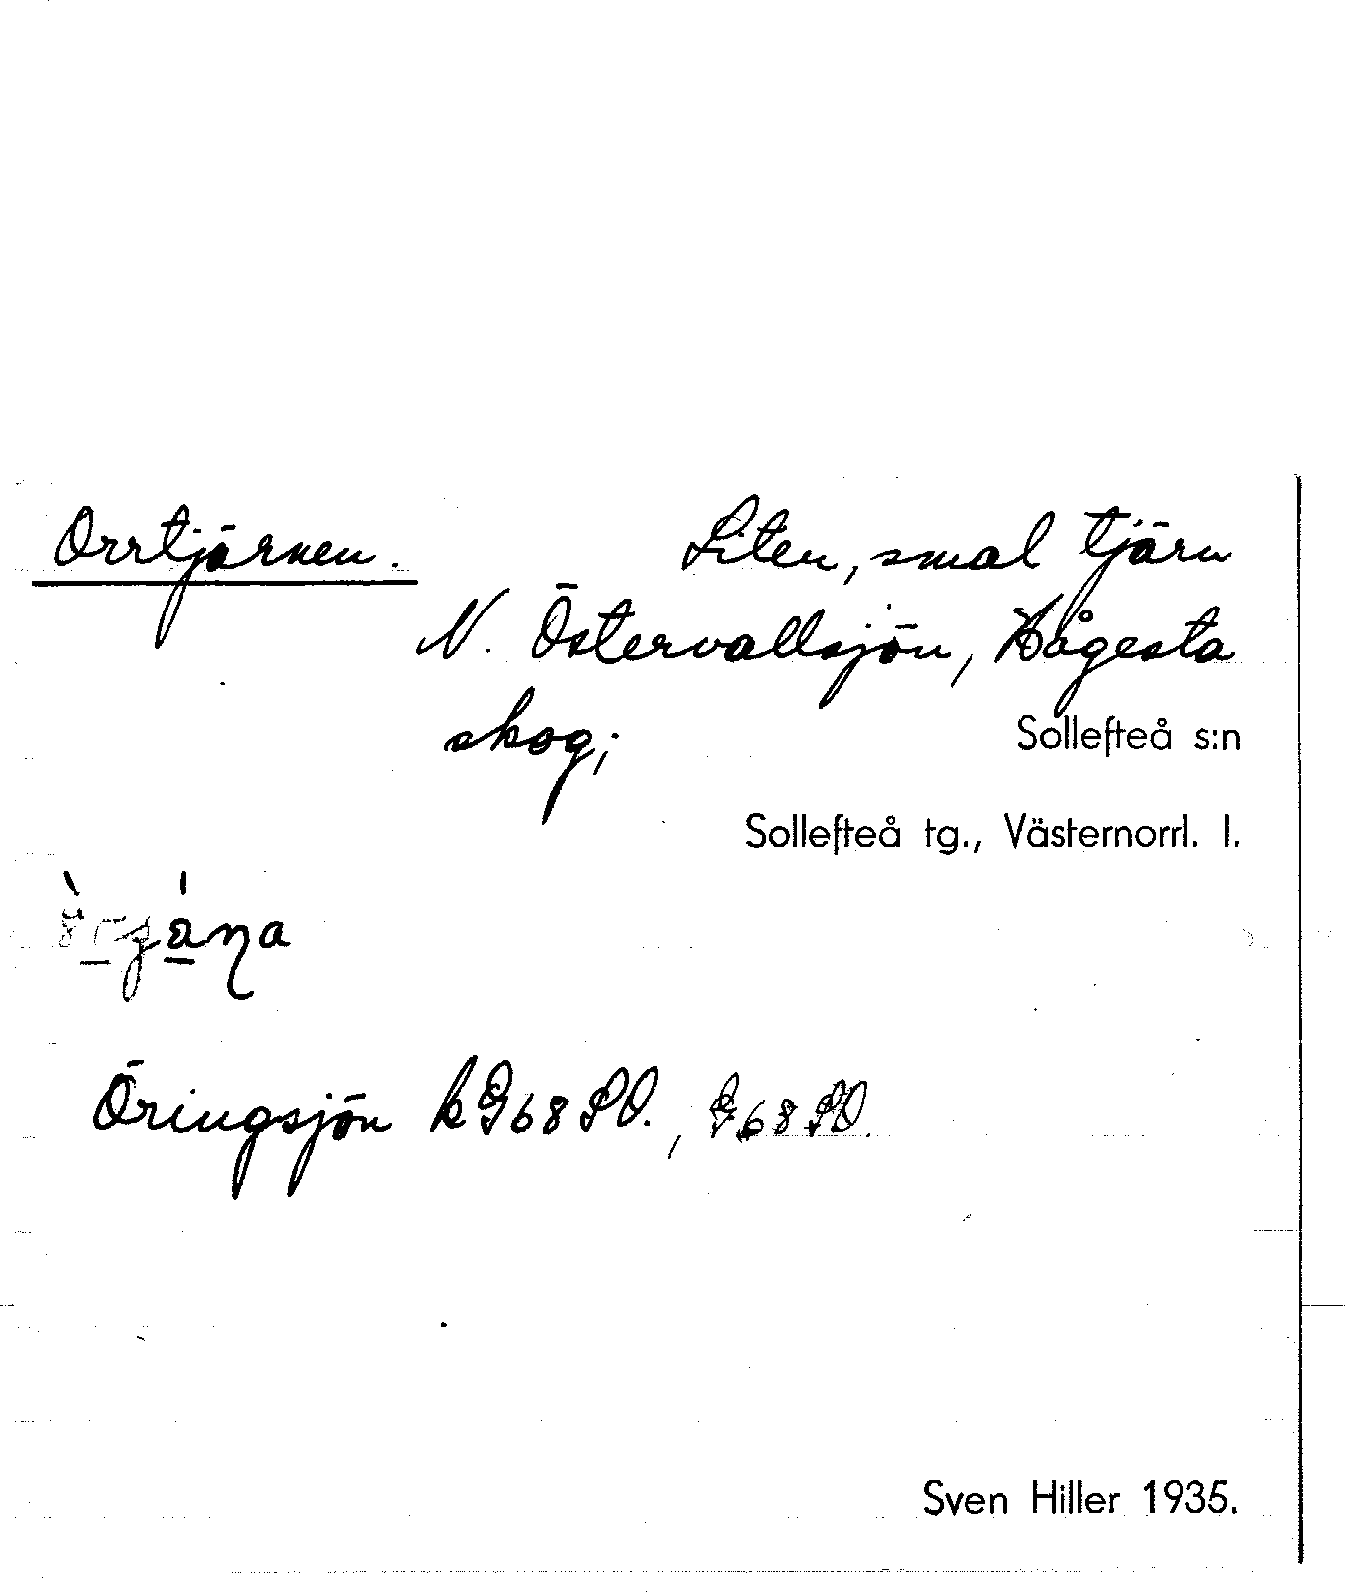 Orrtjärnen. Liten, smal tjärn
N. Östervallsjön, Hågesta
skog; Sollefteå s:n
Sollefteå tg., Västernorrl. l.
Öringsjön k G68SO., G68SO.
Sven Hiller 1935.